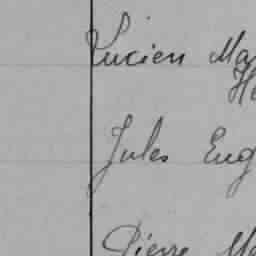 Lucien Ma
H
Jules Eug
Pierre M